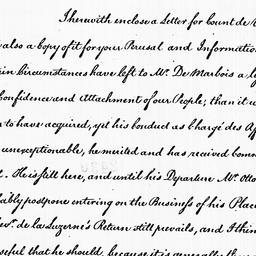 I herewith enclose a Letter for Count de
also a copy of it for your Perusal and Informatio
in Circumstances have left to Mr. De Marbois a
Confidence and Attachment of our People; than it w
to have acquired, yet his Conduct as Chargé des Af
unexceptionable, he merited and has received comm
He is still here, and until his Departure Mr. Otto
ably postpone entering on the Business of his Place
de la Luzerne's Return still prevails, and I thin
useful that he should, because it is generally th